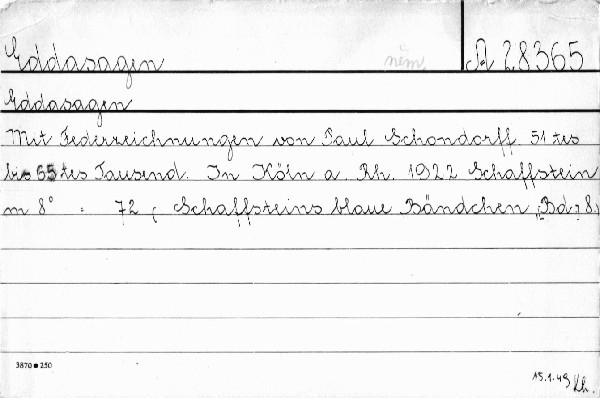 Eddasagen něm. A 28365
Eddasagen
Mit Federzeichnungen von Paul Schondorff 51 tes
bis 65 tes Tausend. In Köln a. Rh. 1922 Schaffstein
m 8° : 72, Schaffsteins blaue Bändchen „Bd. 8.
3870 ● 250
15.1.49 Kh.